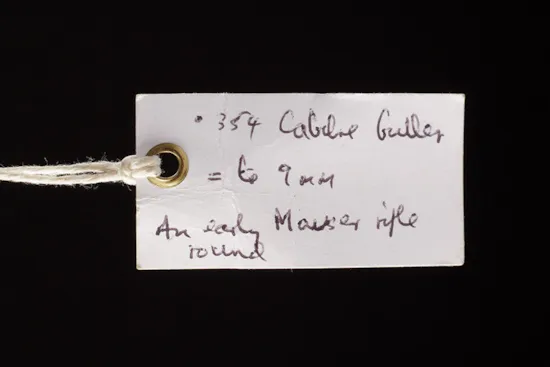 .354 Calibre bullet
= to 9mm
An early Mauser rifle
round